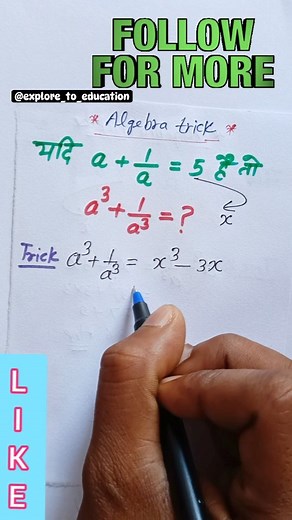 FOLLOW
FOR MORE
@explore_to_education
* Algebra trick *
यदि a + 1/a = 5 है तो
x
a³ + 1/a³ = ?
Trick a³ + 1/a³ = x³ - 3x
L
I
K
E